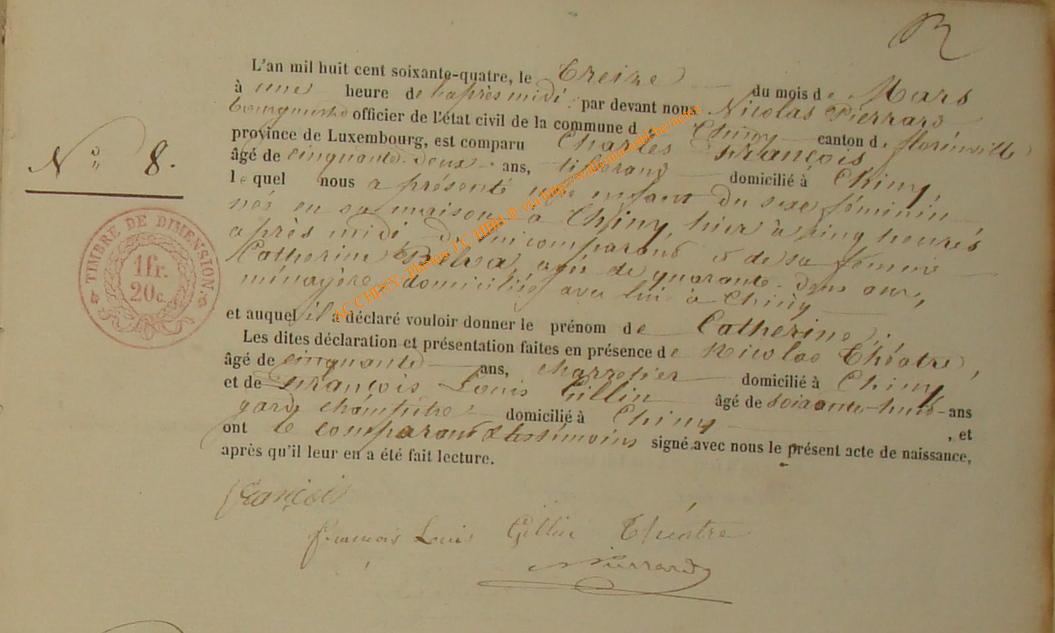 R
L'an mil huit cent soixante-quatre, le treize du mois de Mars
à une heure de l'après midi par devant nous Nicolas Pierrard
bourgmestre officier de l'état civil de la commune de Chiny canton de florenville
province de Luxembourg, est comparu Charles François
âgé de cinquante deux ans, tisserand domicilié à Chiny,
lequel nous a présenté une enfant du sexe féminin
née en sa maison, à Chiny, hier à cinq heures
après midi de lui comparant & de sa femme
Catherine agée de quarante deux ans,
ménagère domiciliée avec lui à Chiny
et auquel il a déclaré vouloir donner le prénom de Catherine.
Les dites déclaration et présentation faites en présence de Nicolas Théatre,
âgé de cinquante ans, charretier domicilié à Chiny
et de François Louis Gillin âgé de soixante-huit ans
garde champêtre domicilié à Chiny , et
ont le comparant & les témoins signé avec nous le présent acte de naissance,
après qu'il leur en a été fait lecture.
N° 8.
TIMBRE DE DIMENSION
1 fr.
20 c.
françois
françois Louis Gillin Théatre
Pierrard